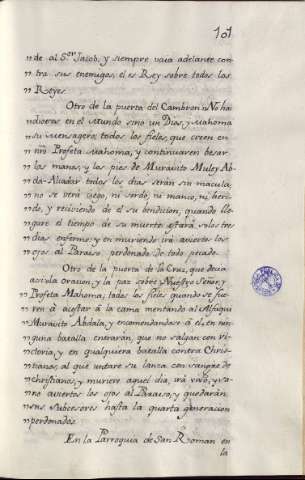 101
"de al S.or Jacob, y siempre vaia adelante con-
"tra sus enemigos, el es Rey sobre todos los
"Reyes.
Otro de la puerta del Cambron "No hai
"dioses en el Mundo sino un Dios, y Mahoma
"su Mensagero, todos los fieles, que creen en
"ntrõ Profeta Mahoma, y continuaren besar
"las manos, y los pies de Muravito Muley Ab-
"da Alcadar todos los dias serán su macula,
"no se verá ciego, ni sordo, ni manco, ni heri-
"do, y recibiendo de el su bendicion, quando lle-
"gare el tiempo de su muerte estará solos tres
"dias enfermo, y en muriendo irá avierto los
"ojos al Paraiso, perdonado de todo pecado.
Otro de la puerta de la Cruz, que decia
assi: la oracion, y la paz sobre Nuestro Señor, y
"Profeta Mahoma, todos los fieles quando se fue-
"ren á acostar á la cama mentando al Alfaqui
"Muravito Abdala, y encomendandose á el, en nin-
"guna batalla entrarán, que no salgan con vi-
"ctoria, y en qualquiera batalla contra Chris-
"tianos, al que untare su lanza con sangre de
"christianos, y muriere aquel dia, irá vivo, y sa-
"no avierto los ojos al Paraiso, y quedarán
"sus subcesores hasta la quarta generacion
"perdonados.
En la Parroquia de San Roman en
la